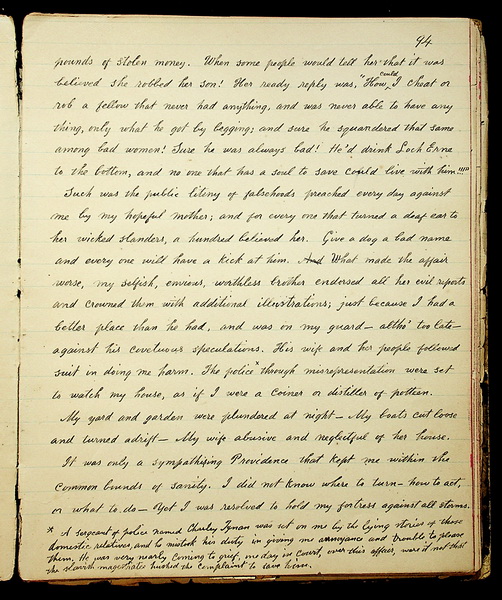 94
pounds of stolen money. When some people would tell her that it was
believed she robbed her son! Her ready reply was, "How could I cheat or
rob a fellow that never had anything, and was never able to have any
thing, only what he got by begging; and sure he squandered that same
among bad women! Sure he was always bad! He'd drink Loch Erne
to the bottom, and no one that has a soul to save could live with him!!!"
Such was the public litiny of falsehoods preached every day against
me by my hopeful mother; and for every one that turned a deaf ear to
her wicked slanders, a hundred believed her. Give a dog a bad name
and every one will have a kick at him. And What made the affair
worse, my selfish, envious, worthless brother endorsed all her evil reports
and crowned them with additional illustrations; just because I had a
better place than he had, and was on my guard — altho' too late —
against his covetuous speculations. His wife and her people followed
suit in doing me harm. The police * through misrepresentation were set
to watch my house, as if I were a coiner or distiller of potteen.
My yard and garden were plundered at night — My boats cut loose
and turned adrift — My wife abusive and neglectful of her house.
It was only a sympathising Providence that kept me within the
common bounds of sanity. I did not know where to turn — how to act,
or what to do — Yet I was resolved to hold my fortress against all storms.
* A Sergeant of police named Charley Tynan was set on me by the lying stories of those
domestic relatives, and he mistook his duty in giving me annoyance and trouble to please
them. He was very nearly coming to grief, one day in Court, over this affair, were it not that
the slavish magistrates hushed the complaint to save him.